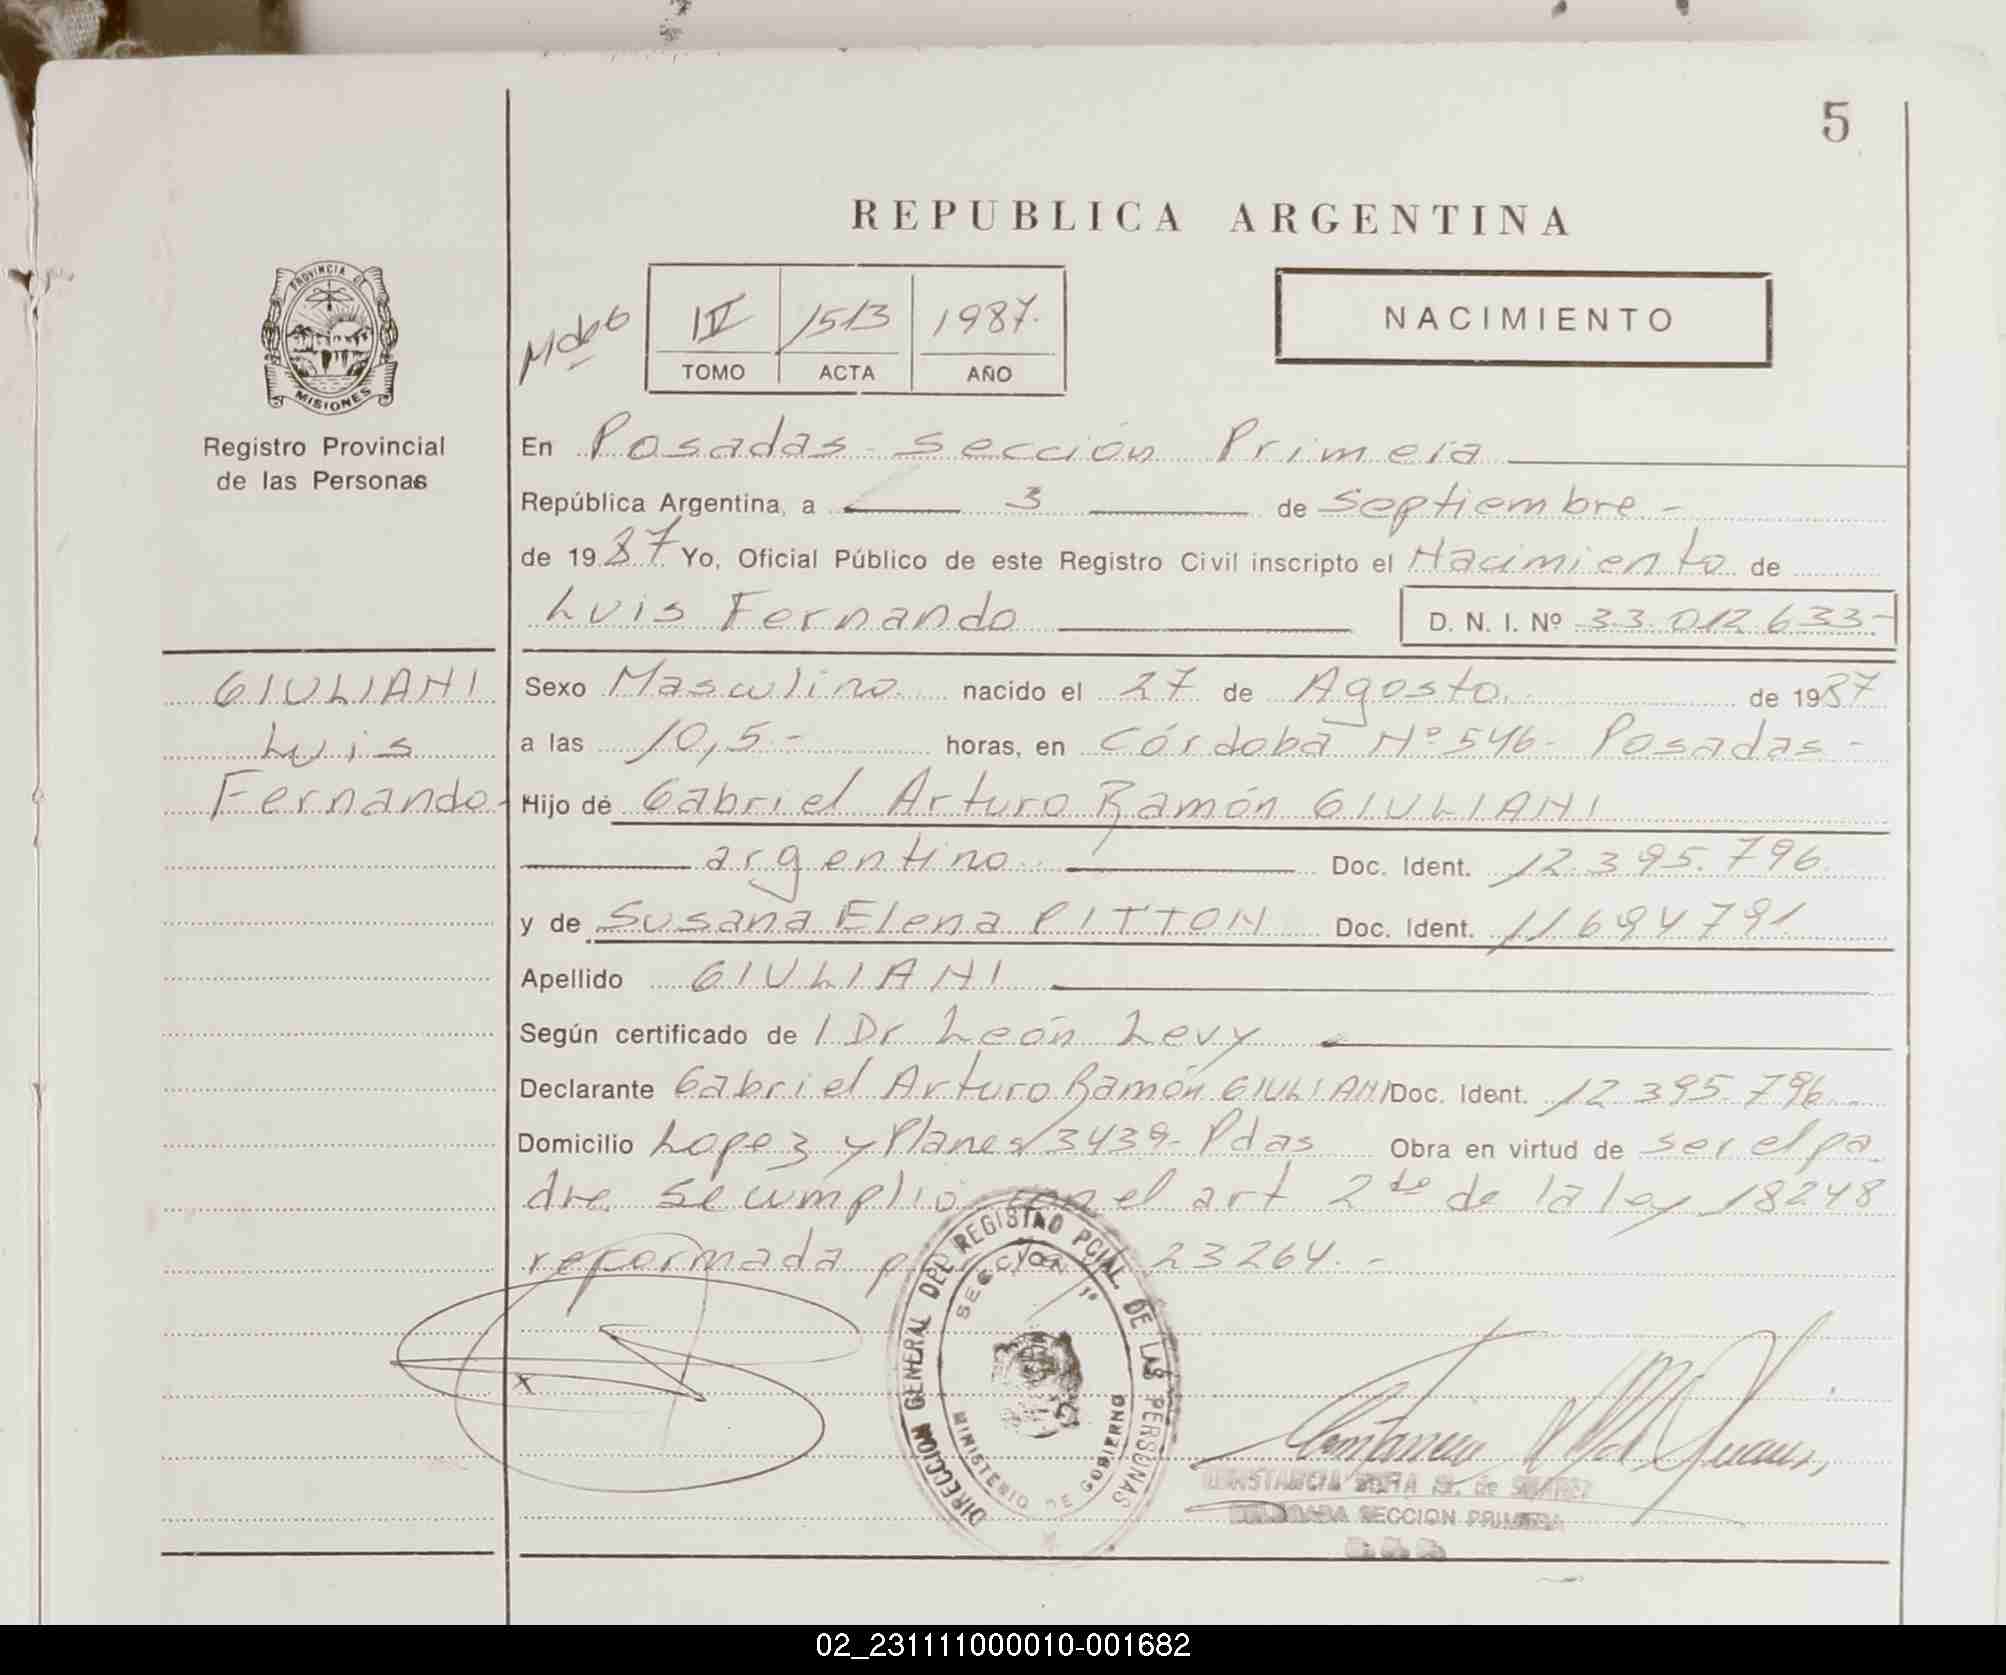 5
REPUBLICA ARGENTINA
PROVINCIA DE
MISIONES
Registro Provincial
de las Personas
IV 1513 1987.
TOMO ACTA AÑO
NACIMIENTO
En Posadas - Sección Primera
República Argentina, a 3 de Septiembre -
de 1987 Yo, Oficial Público de este Registro Civil inscripto el Nacimiento de
Luis Fernando D. N. I. Nº 33.012.633-
GIULIANI
Luis
Fernando-
Sexo Masculino nacido el 27 de Agosto. de 1987
a las 10,5- horas, en Córdoba Nº 546- Posadas-
Hijo de Gabriel Arturo Ramón GIULIANI
argentino Doc. Ident. 12.395.796
y de Susana Elena PITTON Doc. Ident. 11694791
Apellido GIULIANI
Según certificado de / Dr León Levy
Declarante Gabriel Arturo Ramón GIULIANI Doc. Ident. 12 395.796-
Domicilio Lopez y Planes 3439- Pdas Obra en virtud de ser el pa
dre. Se cumplió con el art 2do de la ley 18248
reformada 23264.-
x
DIRECCION GENERAL DEL REGISTRO PCIAL DE LAS PERSONAS
SECCION 1º
MINISTERIO DE GOBIERNO
CONSTANCIA SOFIA de SUAREZ
DELEGADA SECCION PRIMERA
02_231111000010-001682